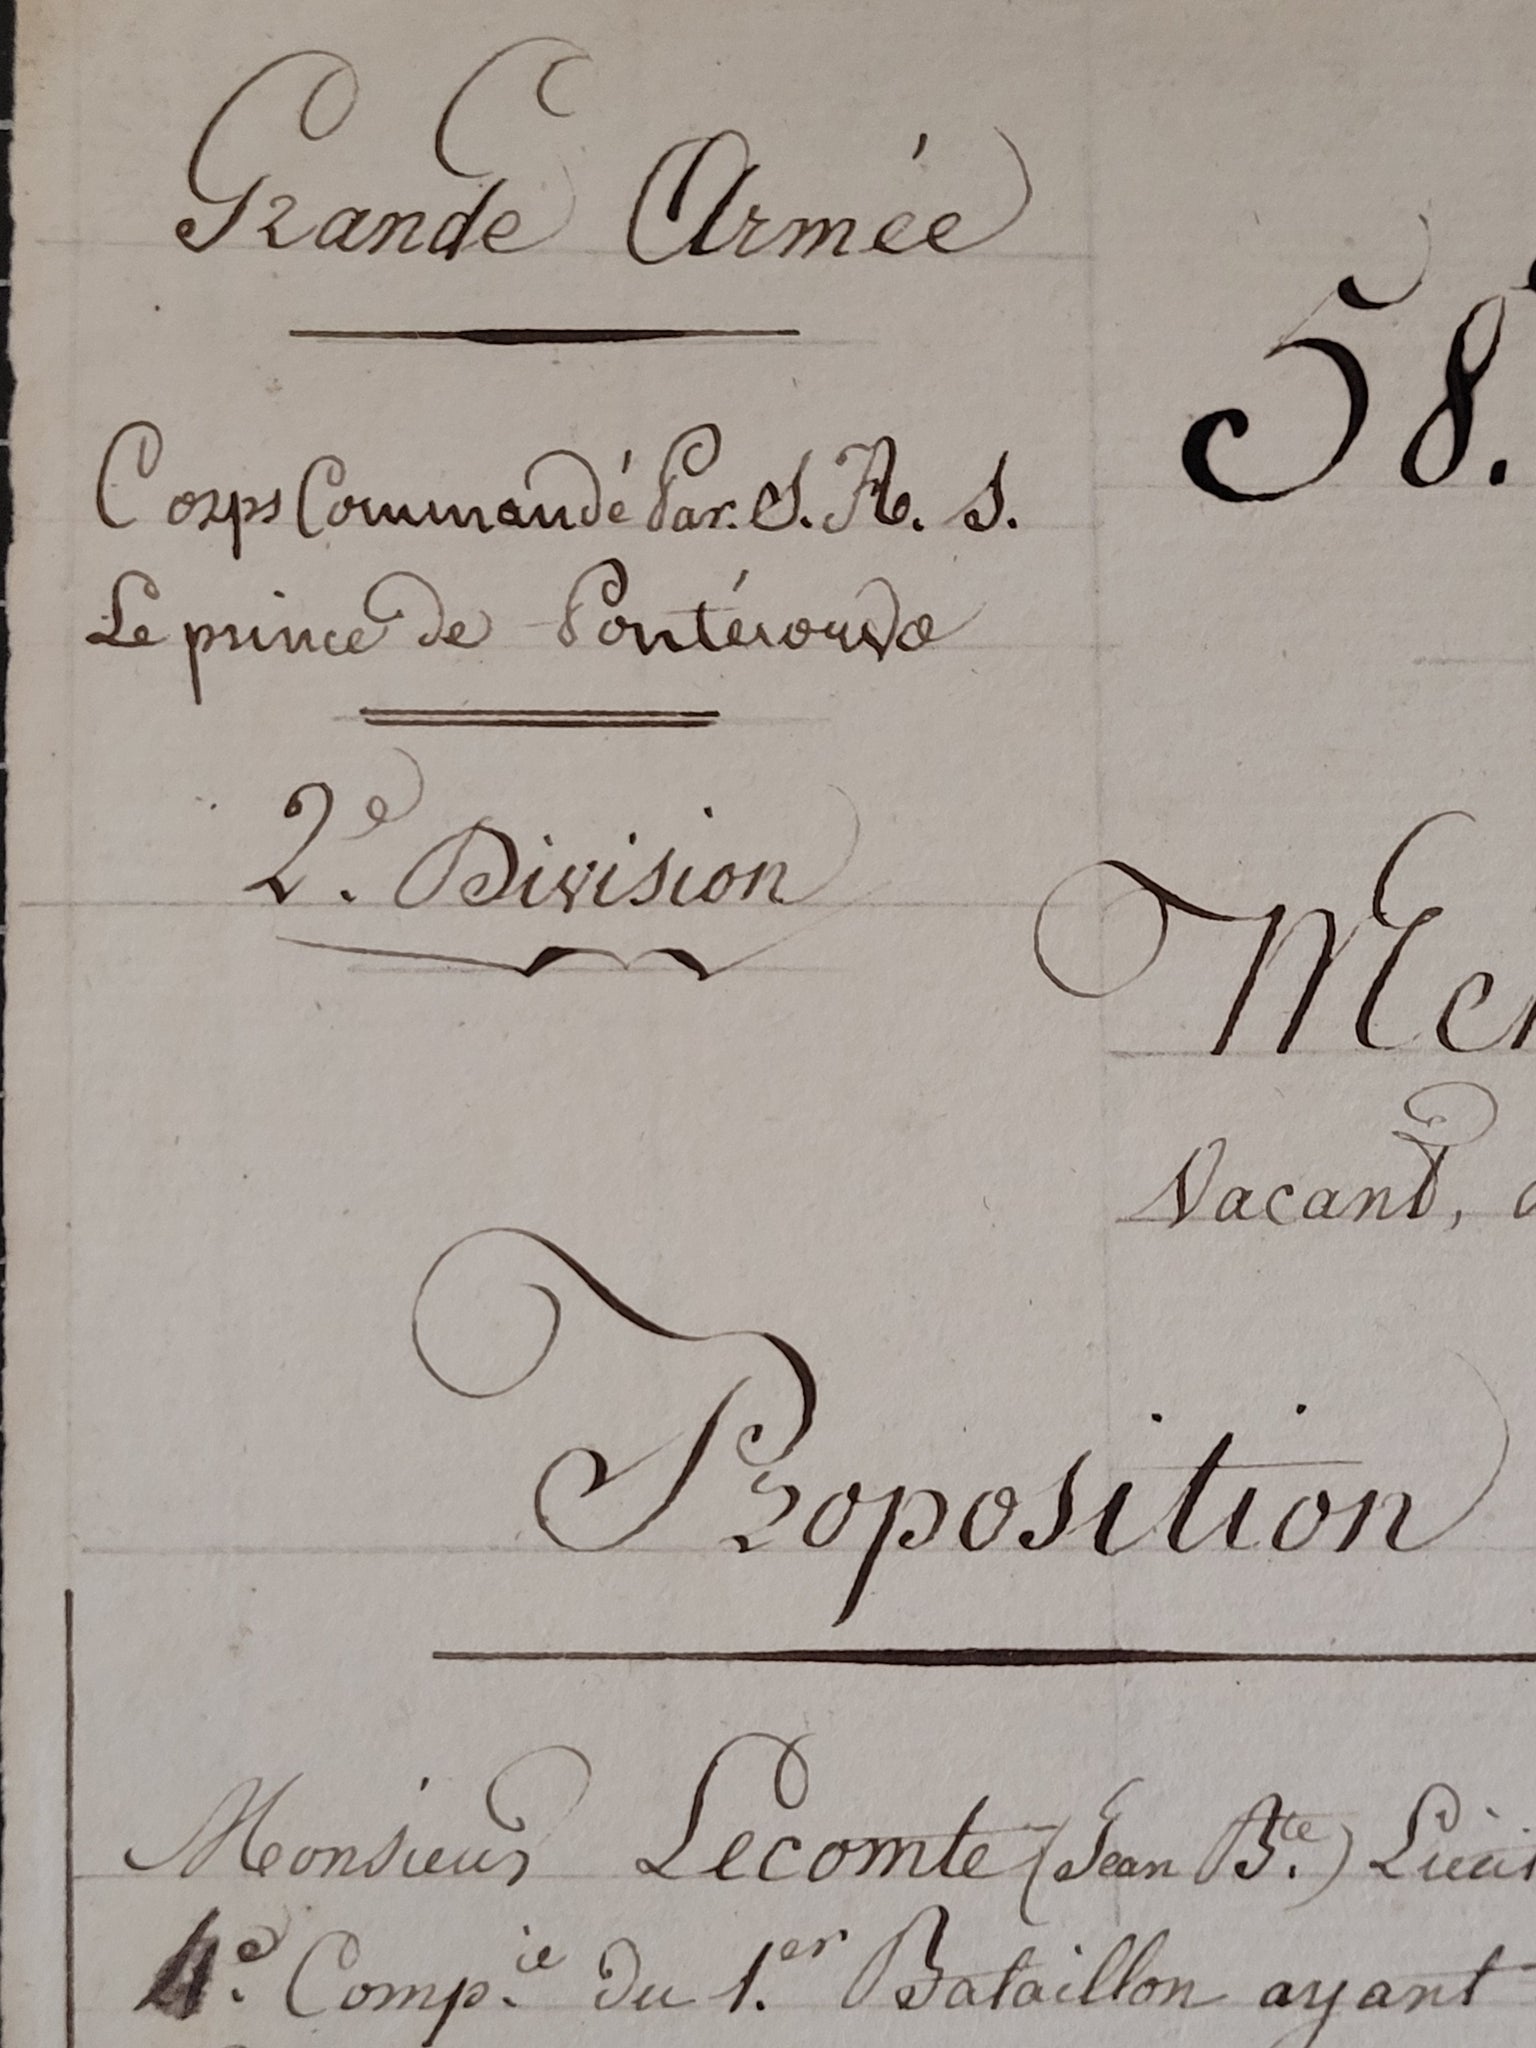 Grande Armée
58.e
Corps Commandé Par. S. A. S.
Le prince de Pontécorvo
2.e Division
Vacant,
Proposition
Monsieur Lecomte (Jean B.te)
4.e Comp.ie du 1.er Bataillon ayant